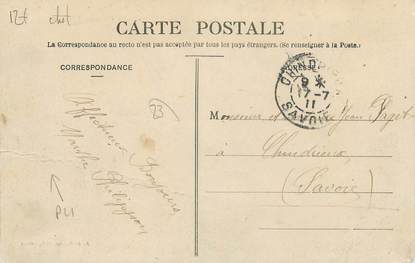 12t
CARTE POSTALE
La Correspondance au recto n'est pas acceptée par tous les pays étrangers. (Se renseigner à la Poste.)
CORRESPONDANCE
ADRESSE
CHINDRIEUX
9 *
17-7
11
SAVOIE
23
Affectueux Bonjours
Philippon
PLI
Monsieur et Jean Pagès
à Chindrieux
(Savoie)